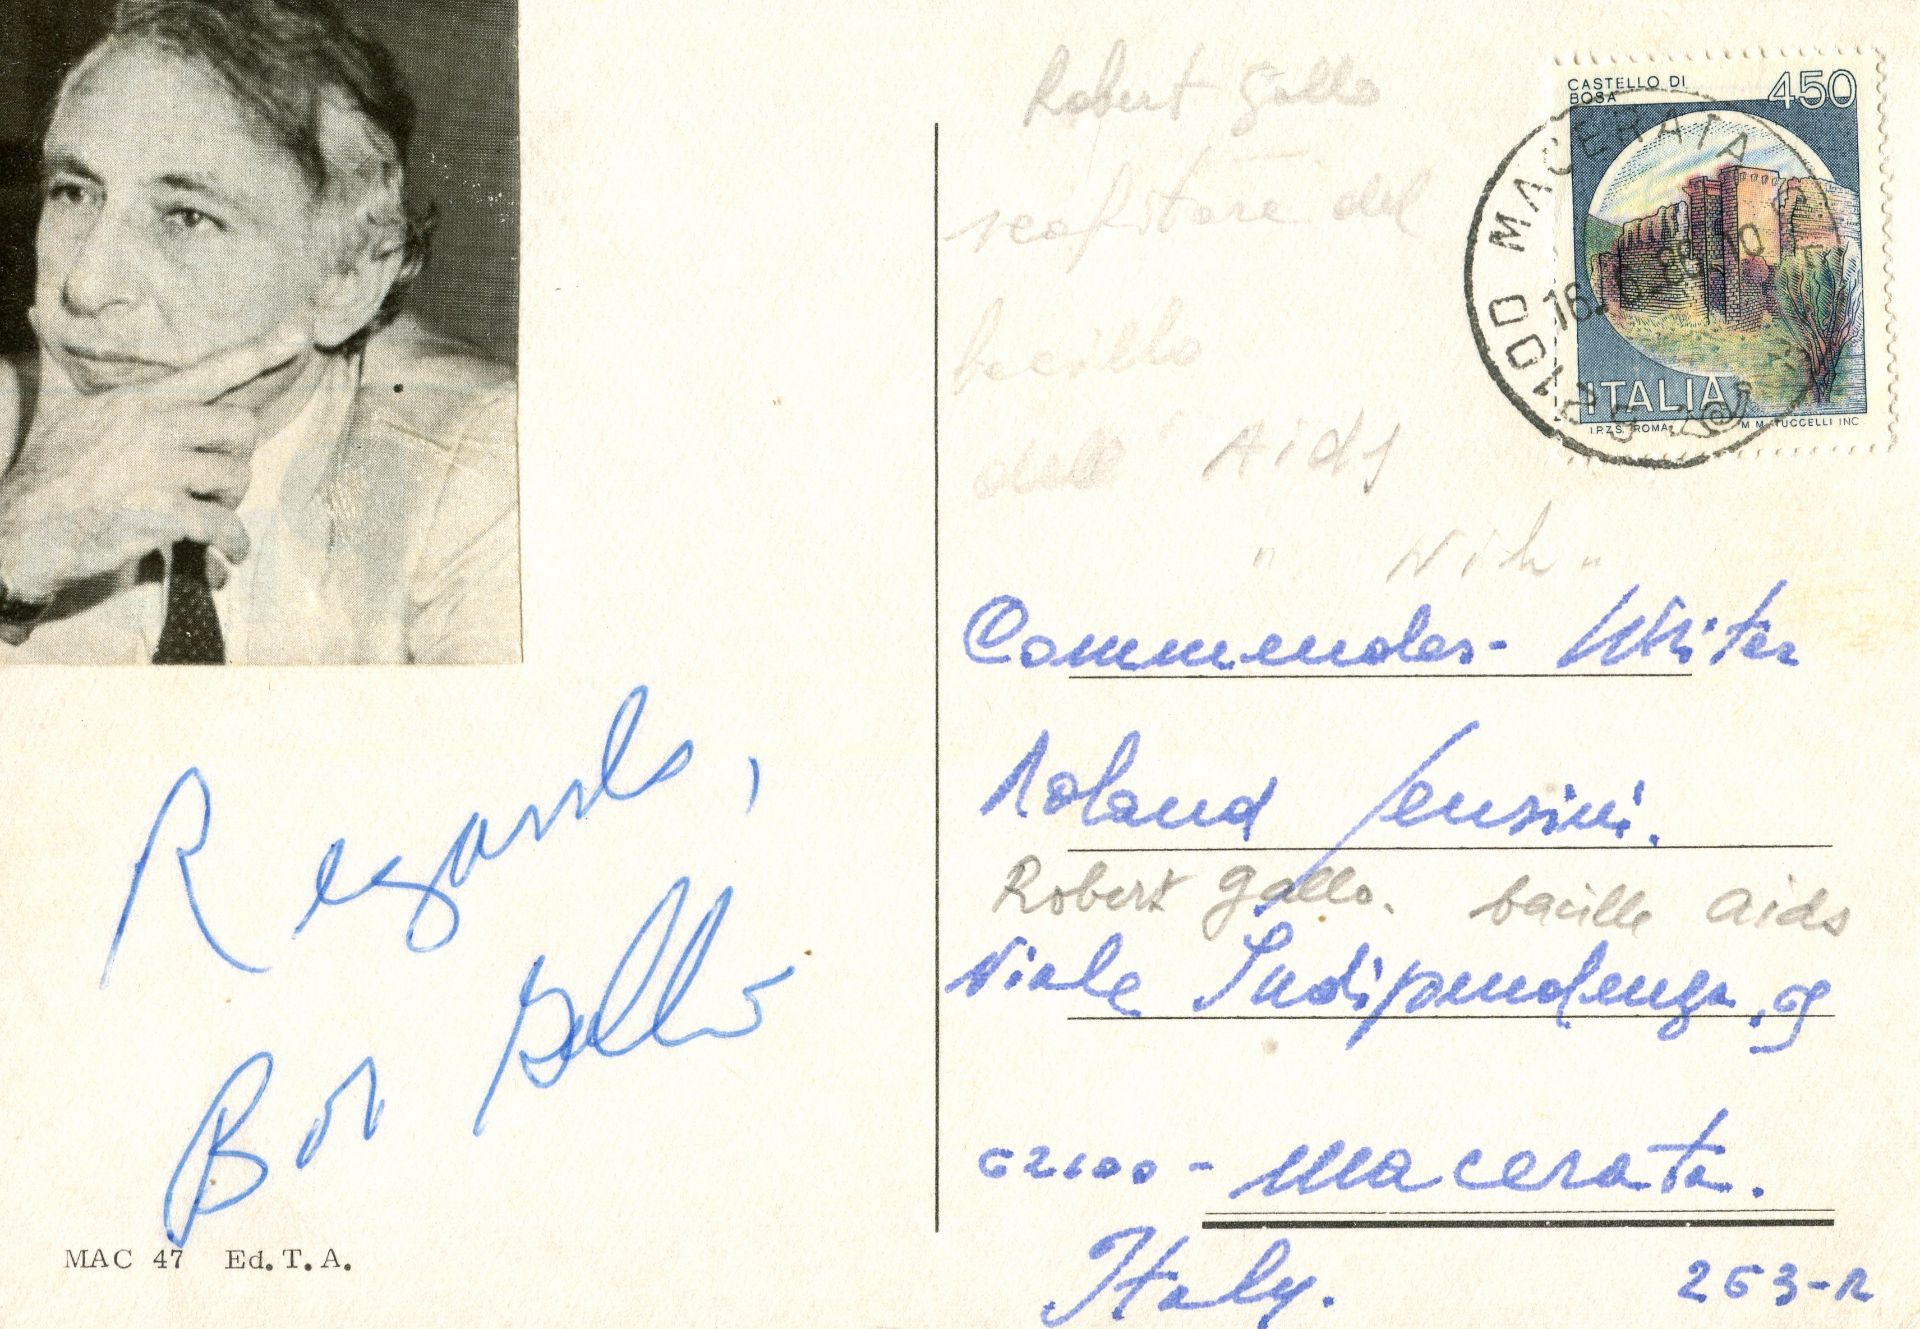 Regards,
Bob Gallo
MAC 47 Ed. T. A.
Robert Gallo
scopritore del
bacillo
dell' Aids
" Nih "
CASTELLO DI
BOSA
450
ITALIA
I.P.Z.S. ROMA
M.M. TUCCELLI INC
62100 MACERATA
Commendar- Writer
Roland Sensini.
Robert Gallo. bacillo Aids
Viale Indipendenza,
62100 - Macerata.
Italy.
253-R